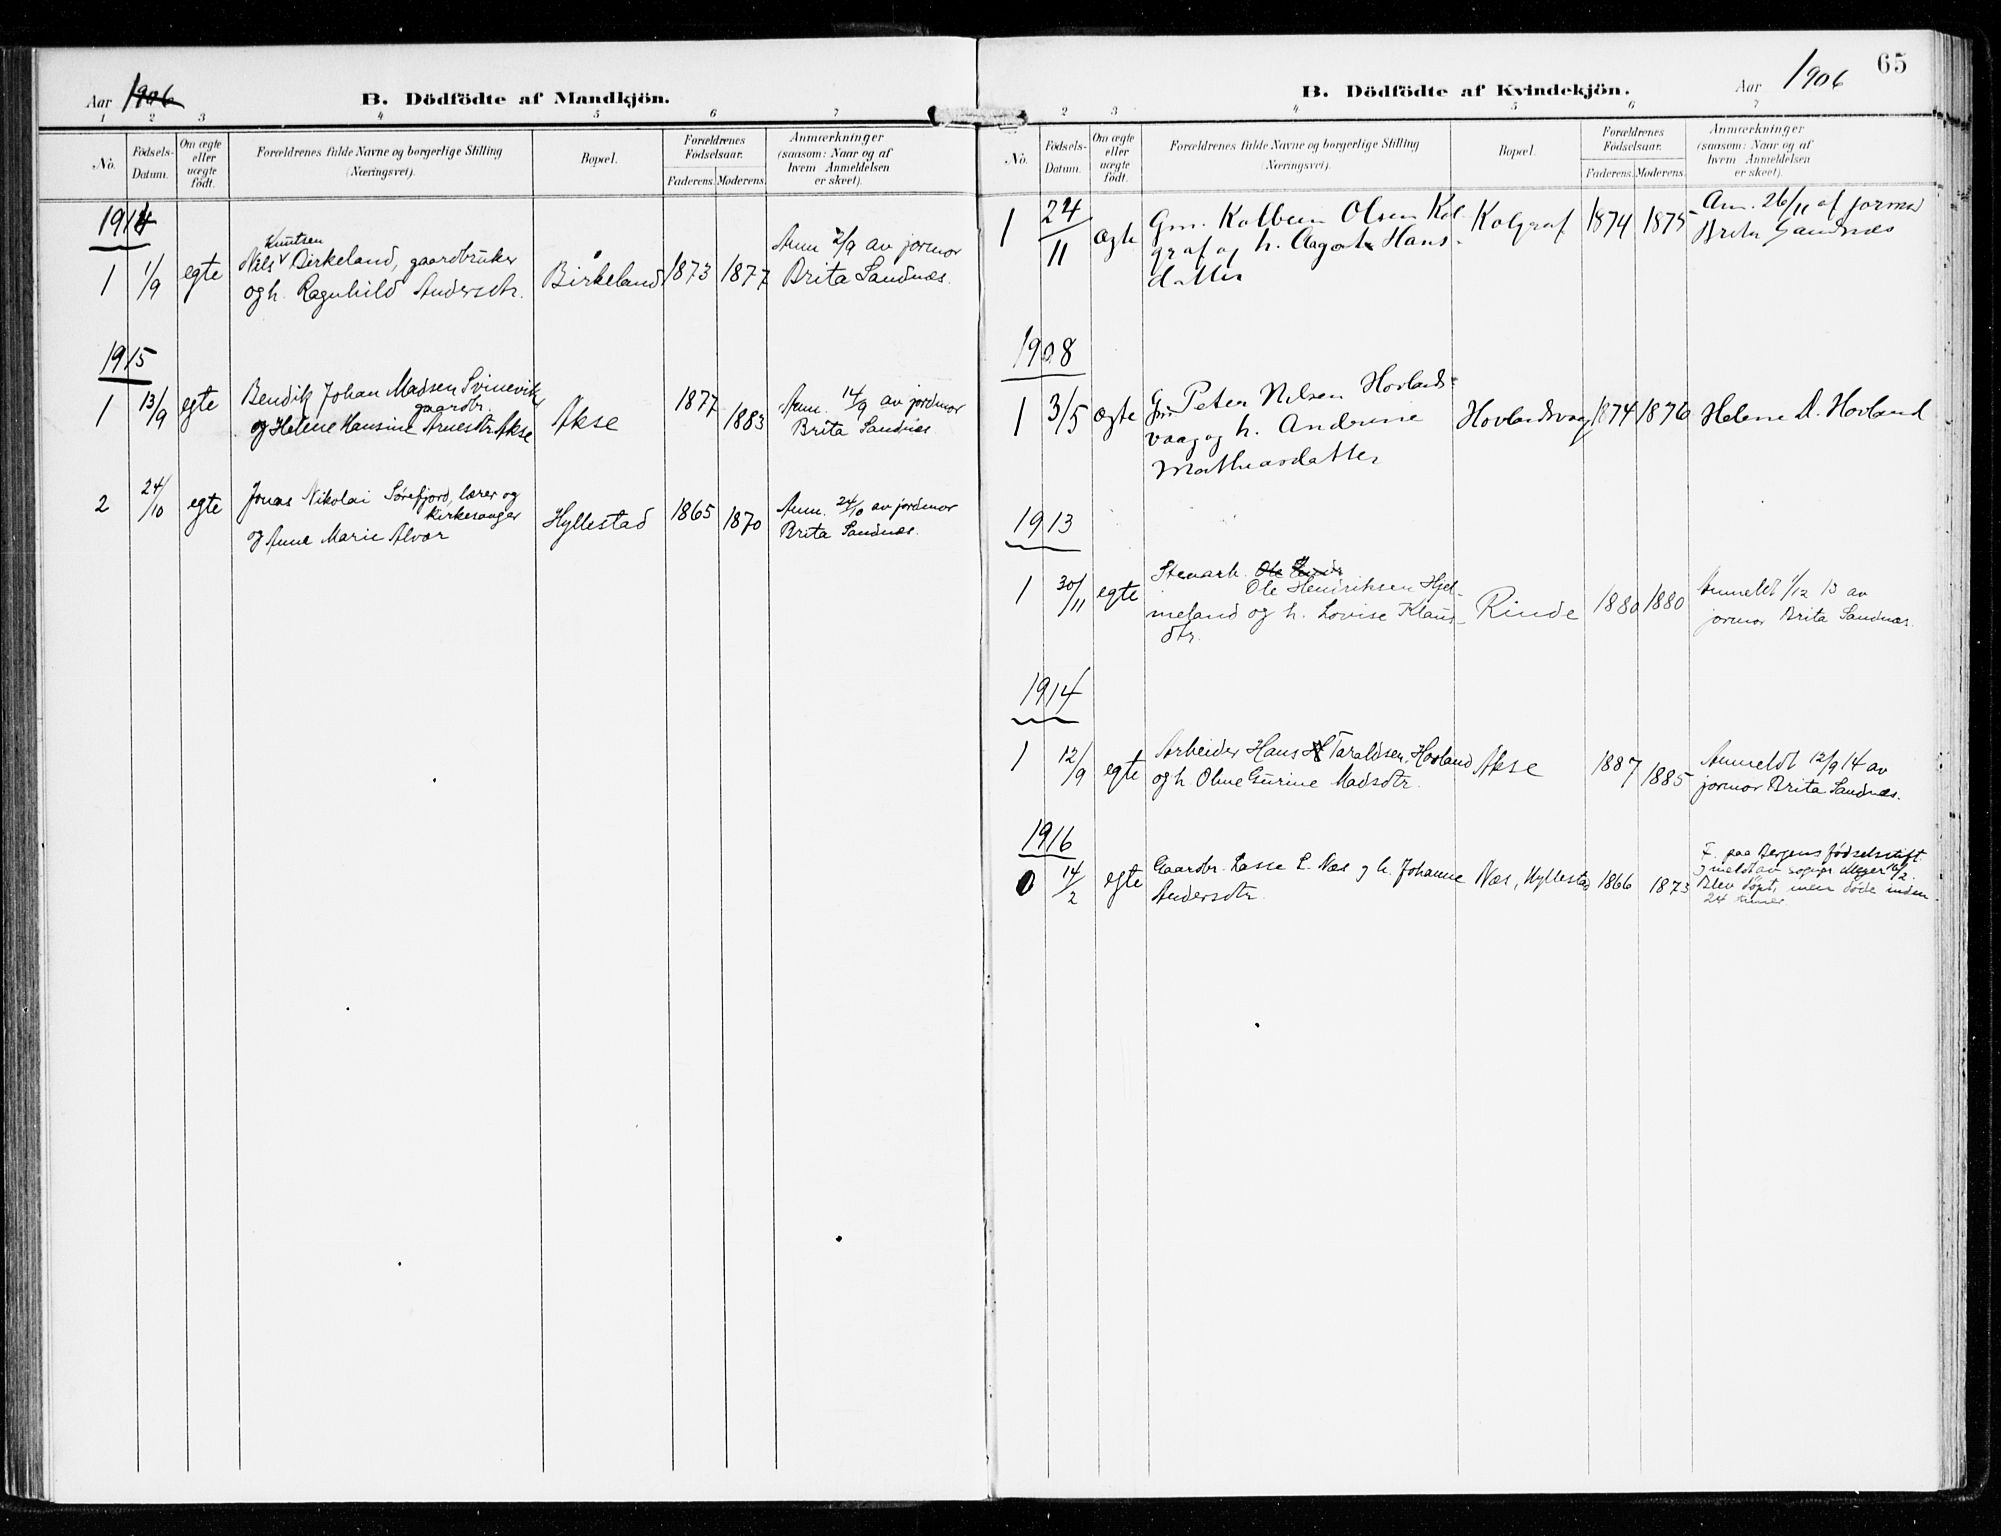 Aar 1906
B. Dödfödte af Mandkjön.
1 2 3 4 5 6 7
No.
Födsels-Datum.
Om ægte eller uægte födt.
Forældrenes fulde Navne og borgerlige Stilling
(Næringsvei).
Bopæl.
Forældrenes Födselsaar.
Faderens. Moderens.
Anmærkninger
(saasom: Naar og af
hvem Anmeldelsen
er skeet).
1914
1 1/9 egte Nils Knutsen Birkeland, gaardbruker
og h. Ragnhild Andersdtr. Birkeland 1873 1877 Anm 2/9 av jormor
Brita Sandnæs.
1915
1 13/9 egte Bendik Johan Madsen Svinevik,
gaardbr.
og Helene Hansine Arnesdtr. Akse Akse 1877 1883 Anm. 14/9 av jordmor
Brita Sandnæs
2 24/10 egte Jonas Nikolai Sørefjord, lærer og
kirkesanger
og Anne Marie Alvær Hyllestad 1865 1870 Anm. 24/10 av jordmor
Brita Sandnæs.
65
Aar 1906
B. Dödfödte af Kvindekjön.
2 3 4 5 6 7
No.
Födsels-Datum.
Om ægte eller uægte födt.
Forældrenes fulde Navne og borgerlige Stilling
(Næringsvei).
Bopæl.
Forældrenes Födselsaar.
Faderens. Moderens.
Anmærkninger
(saasom: Naar og af
hvem Anmeldelsen
er skeet).
1 24/11 ægte Gm. Kolbein Olsen Kol-
graf og h. Aagot Hans-
datter Kolgraf 1874 1875 Anm. 26/11 af jormor
Brita Sandnæs
1908
1 3/5 ægte Gm. Peter Nilsen Hovlands-
vaag og h. Andrine
Mathiasdatter Hovlandsvaag 1874 1876 Helene D. Hovland
1913
1 30/11 egte Stenarb. Ole
Ole Henriksen Hjel-
meland og h. Lovise Klaus-
dtr. Rinde 1880 1880 Anmeldt 1/12 13 av
jormor Brita Sandnæs.
1914
1 12/9 egte Arbeider Hans Taraldsen Hovland
og h. Oline Gurine Madsdtr. Akse 1887 1885 Anmeldt 12/9 14 av
jormor Brita Sandnæs.
1916
0 14/2 egte Gaardbr. Lasse L. Næs og h. Johanne
Andersdtr. Næs, Hyllestad 1866 1873 F. paa Bergens fødselsstift.
meldt av sogpr. Meyer 16/2.
Blev døpt, men døde inden
24 timer.